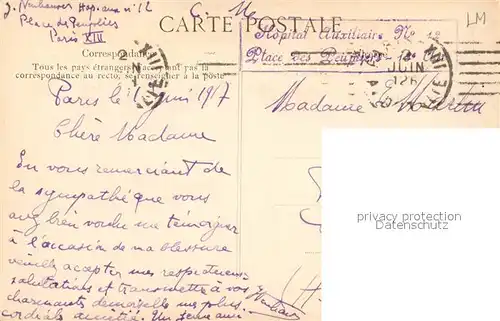 J. Neuhauser Hop. aux. nº 12
Place des Peupliers
Paris XIII
C. M.
LM
CARTE POSTALE
Correspondance
Tous les pays étrangers n'acceptent pas la
correspondance au recto, se renseigner à la poste
Hôpital Auxiliaire Nº 12
Place des Peupliers
JUIN
Paris le juin 1917
Madame
Chère Madame
En vous remerciant de
la sympathie que vous
avez bien voulu me témoigner
à l'occasion de ma blessure
veuillez accepter mes respectueuses
salutations et transmettre à vos
charmantes demoiselles mes plus
cordiale amitié. Un jeune ami
privacy protection
Datenschutz